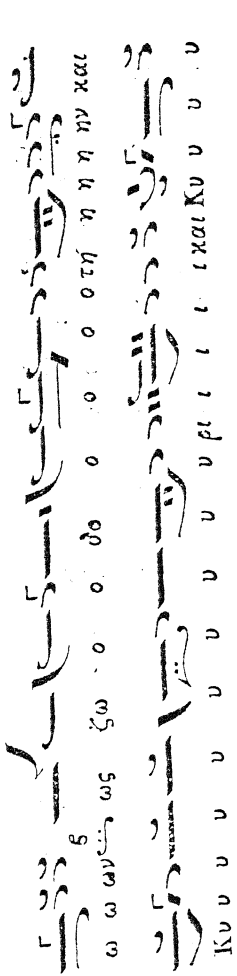 ω ω ων ως ζω ο ο δο ο ο ο ο τή η η ην και
Κυ υ υ υ υ υ υ υ υ ρι ι ι ι ι και Κυ υ υ υ